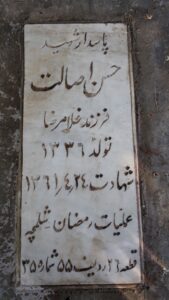 پاسدار شهید
حسن اصالت
فرزند غلامرضا
تولد ۱۳۳۶
شهادت ۱۳۶۱/۴/۲۴
عملیات رمضان شلمچه
قطعه ۲۶ ردیف ۵۵ شماره ۳۵